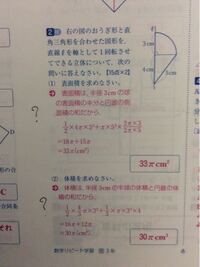 2 図 右の図のおうぎ形と直
角三角形を合わせた図形を、
直線ℓを軸として1回転させ
てできる立体について、次の
問いに答えなさい。〔15点×2〕
(1) 表面積を求めなさい。
ℓ
3cm
4cm
5cm
?
表面積は、半径3cmの球
の表面積の半分と円錐の側
面積の和だから、
1/2×4π×3²+π×5²×(2π×3)/(2π×5)
=18π+15π
=33π(cm²)
33π cm²
(2) 体積を求めなさい。
?
体積は、半径3cmの半球の体積と円錐の体
積の和だから、
1/2×4/3π×3³+1/3π×3²×4
=18π+12π
=30π(cm³)
30π cm³
数学リピート学習 3年